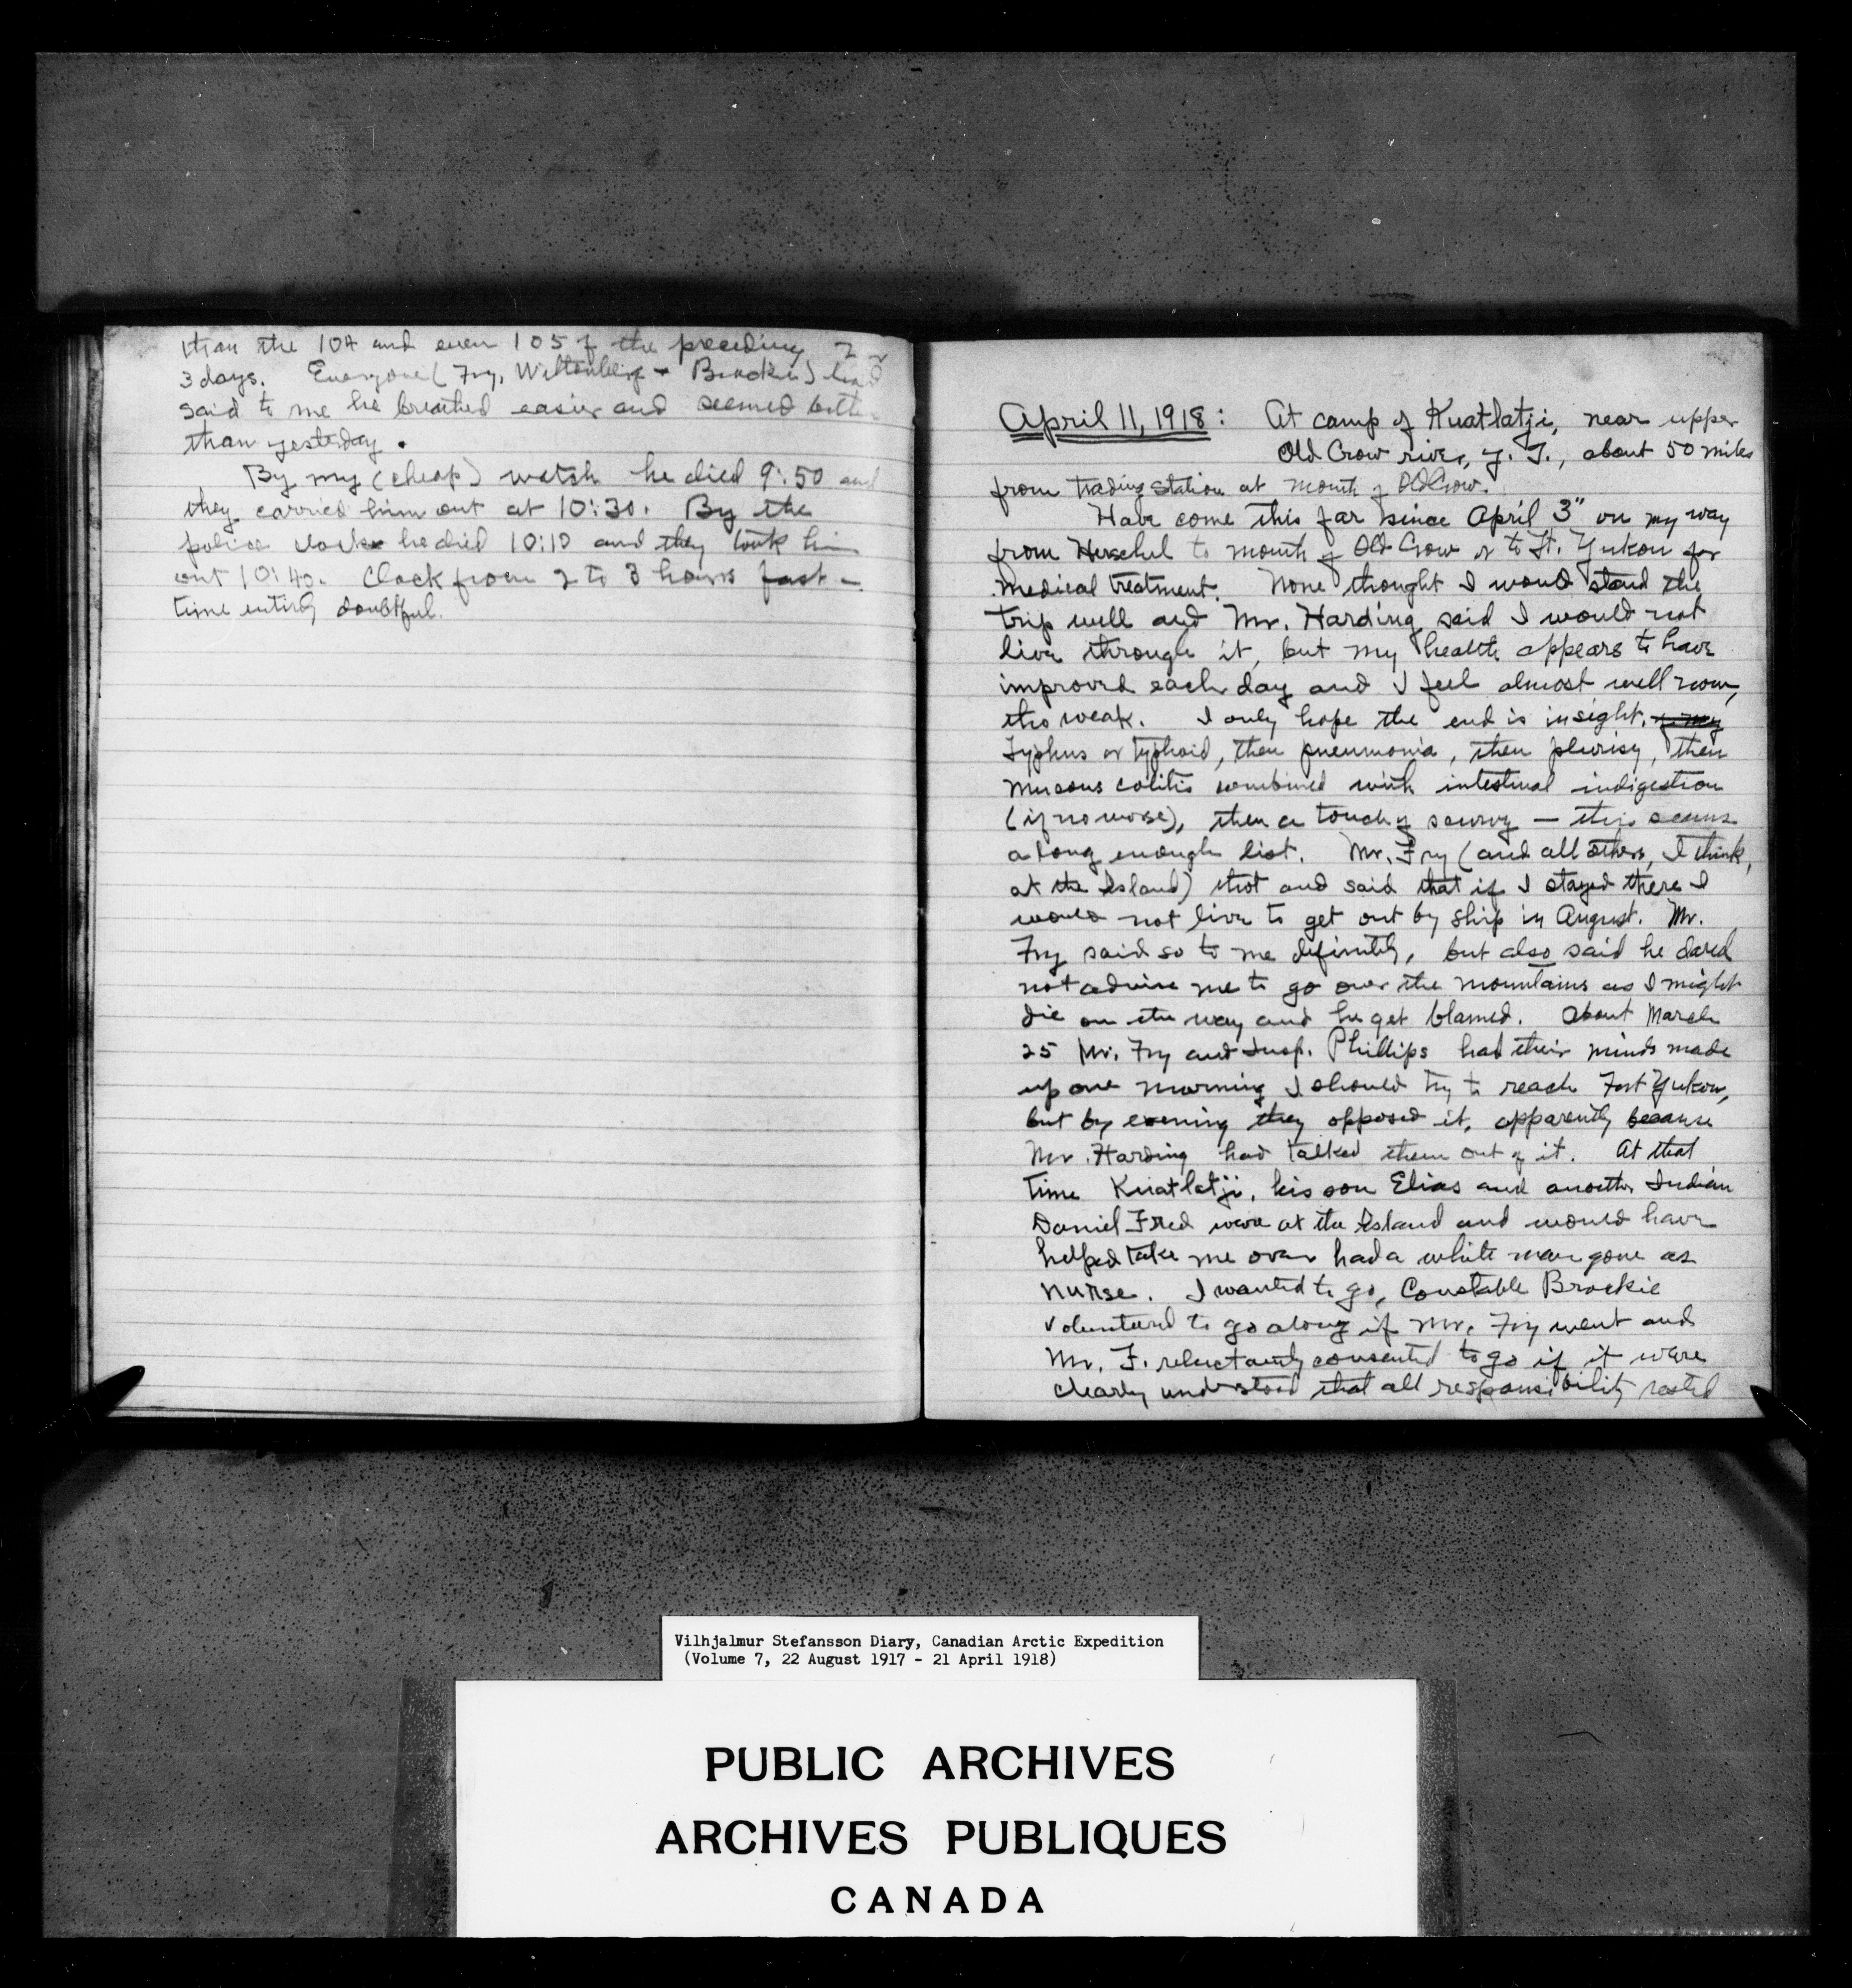 than the 104 and even 105 of the preceding 2 or
3 days. Everyone (Fry, Wittenberg + Brockie) had
said to me he breathed easier and seemed better
than yesterday.
By my (cheap) watch he died 9:50 and
they carried him out at 10:30. By the
police clock he died 10:10 and they took him
out 10:40. Clock from 2 to 3 hours fast –
time entirely doubtful.
April 11, 1918: At camp of Kuatlatji, near upper
Old Crow river, Y. T., about 50 miles
from trading station at mouth of Old Crow.
Have come this far since April 3" on my way
from Herschel to mouth of Old Crow or to Ft. Yukon for
medical treatment. None thought I would stand the
trip well and Mr. Harding said I would not
live through it, but my health appears to have
improved each day and I feel almost well now,
tho weak. I only hope the end is in sight.
Typhus or typhoid, then pneumonia, then plurisy, then
mucous colitis combined with intestinal indigestion
(if no worse), then a touch of scurvy — this seems
a long enough list. Mr. Fry (and all others, I think,
at the Island) thot and said that if I stayed there I
would not live to get out by ship in August. Mr.
Fry said so to me definitely, but also said he dared
not advise me to go over the mountains as I might
die on the way and he get blamed. About March
25 Mr. Fry and Insp. Phillips had their minds made
up one morning I should try to reach Fort Yukon,
but by evening they opposed it, apparently because
Mr. Harding had talked them out of it. At that
time Kuatlatji, his son Elias and another Indian
Daniel Fred were at the Island and would have
helped take me over had a white man gone as
nurse. I wanted to go, Constable Brockie
voluntured to go along if Mr. Fry went and
Mr. F. reluctantly consented to go if it were
clearly understood that all responsibility rested
Vilhjalmur Stefansson Diary, Canadian Arctic Expedition
(Volume 7, 22 August 1917 - 21 April 1918)
PUBLIC ARCHIVES
ARCHIVES PUBLIQUES
CANADA